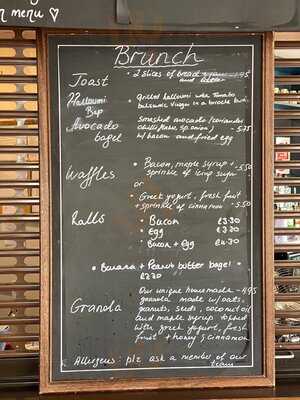 n menu ♡
Brunch
Toast • 2 slices of bread + jam - .95
and butter
Halloumi • Grilled halloumi with tomato
Bap balsamic vinegar in a brioche bun
Avocado Smashed avocado/coriander
bagel chilli flakes, sp onion) - 5.75
w/ bacon and fried egg
Waffles • Bacon, maple syrup + - 5.50
sprinkle of icing sugar
or
• Greek yogurt, fresh fruit
+ sprinkle of cinnamon - 5.50
Rolls • Bacon £3.30
• Egg £3.30
• Bacon + Egg £4.30
• Banana + Peanut butter bagel •
Granola Our unique homemade - 4.95
granola made w/ oats,
peanuts, seeds, coconut oil
and maple syrup topped
with greek yogurt, fresh
fruit + honey & cinnamon
Allergens: plz ask a member of our
team